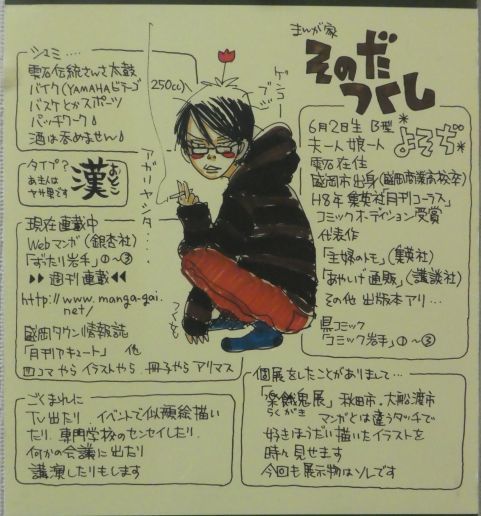 まんが家
そのだ
つくし
シュミ....
雫石伝統さんさ太鼓
バイク(YAMAHAビラーゴ
250cc)
バスケとかスポーツ
パッチワーク♪
酒は呑めません♪
タイプ?
漢
おとこ
あ、主人は
ヤサ男です
ゲンコー
アガリヤシタ...
6月2日生 B型
夫一人 娘一人
よろぢ
雫石在住
盛岡市出身(盛岡市商高校卒)
H8年 集英社月刊コーラス
コミックオーディション受賞
代表作
「主婦のトモ」(集英社)
「あやいげ通販」(講談社)
その他 出版本アリ...
県コミック
「コミック岩手」①~③
現在連載中
Webマンガ(銀杏社)
「ずったり岩手」①~③
▶▶週刊連載◀◀
http://www.manga-gai.
net/
盛岡タウン情報誌
「月刊アキュート」 他
四コマやらイラストやら冊子やらアリマス
ごくまれに
TV出たり、イベントで似顔絵描い
たり、専門学校のセンセイしたり、
何かの会議に出たり
講演したりもします
個展をしたことがありまして...
「楽餓鬼展」秋田市、大船渡市
らくがき
マンガとは違うタッチで
好きほうだい描いたイラストを
時々見せます
今回も展示物はソレです